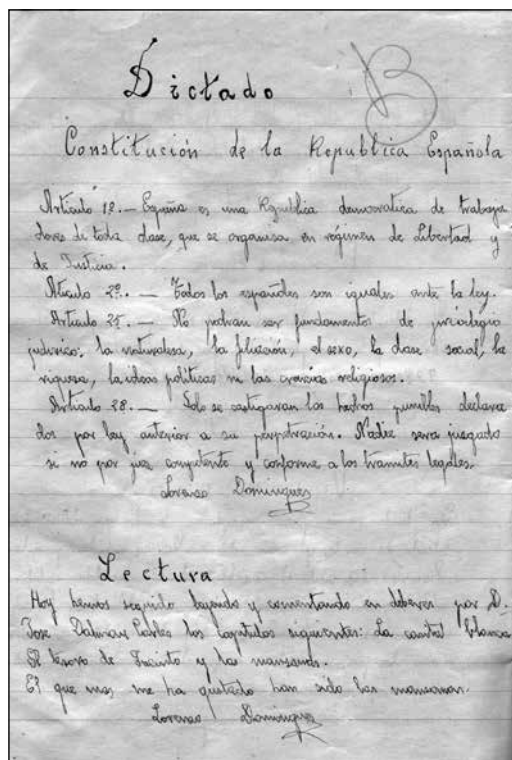 Dictado
B
Constitución de la Republica Española
Articulo 1º.— España es una Republica democratica de trabaja
dores de toda clase, que se organisa en régimen de Libertad y
de Justicia.
Aticulo 2º.— Todos los españoles son iguales ante la ley.
Articulo 25.— No podran ser fundamentos de privilegio
juridico: la naturalesa, la filiación, el sexo, la clase social, la
riquesa, la ideas politicas ni las creencias religiosos.
Articulo 28.— Solo se castigaran los hechos punibles declara
dos por ley anterior a su perpetración. Nadie sera juzgado
si no por juez competente y conforme a los tramites legales.
Lorenso Domingues
Lectura
Hoy hemos seguido leyendo y comentando en deberes por D.
Jose Dalmau Carles los capitulos siguientes: La Blanca
El tesoro de Jacinto y las mansanas.
El que mas me ha gustado han sido las mansanas.
Lorenso Domingues